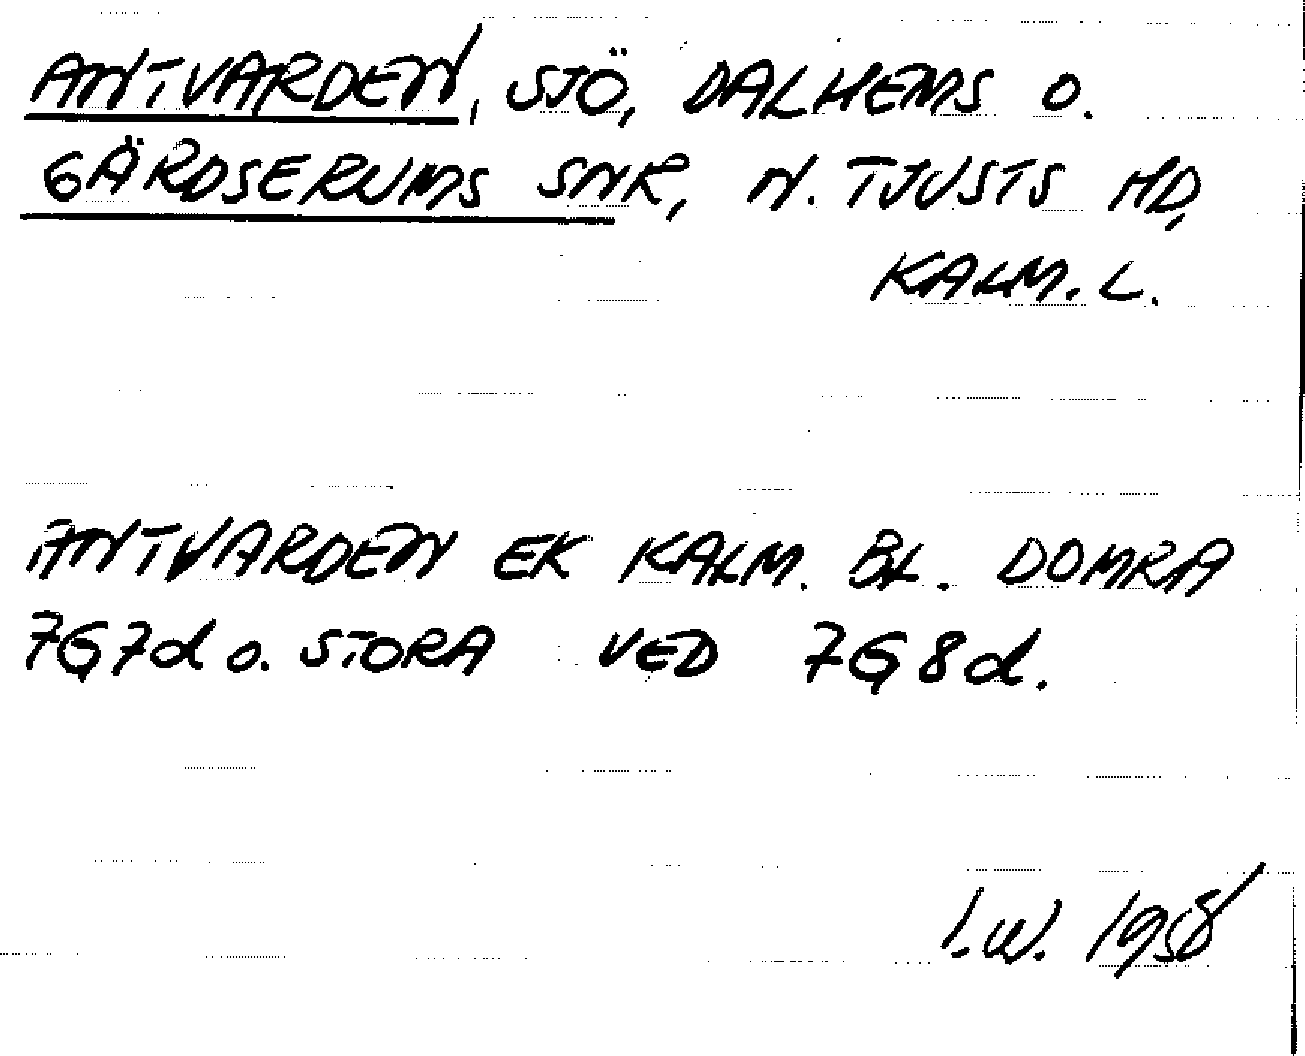 ANTVARDEN, SJÖ, DALHEMS O.
GÄRDSERUMS SNR, N. TJUSTS HD,
KALM. L.
ANTVARDEN EK KALM. BL. DOMRA
7G7d O. STORA VED 7G8d.
I.W. 1958